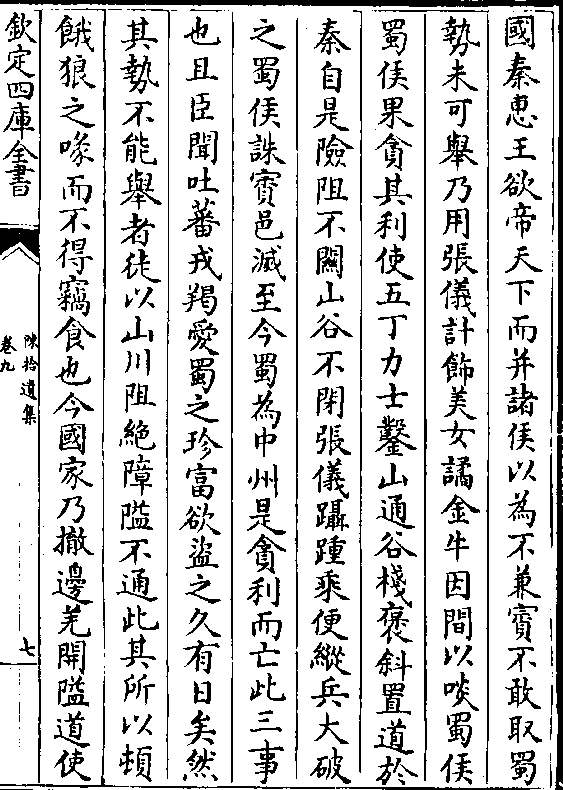 國秦惠王欲帝天下而并諸侯以為不兼賨不敢取蜀
勢未可舉乃用張儀計飾美女譎金牛因間以啖蜀侯
蜀侯果貪其利使五丁力士鑿山通谷棧褒斜置道於
秦自是險阻不關山谷不閉張儀躡踵乘便縱兵大破
之蜀侯誅賨邑滅至今蜀為中州是貪利而亡此三事
也且臣聞吐蕃戎羯愛蜀之珍富欲盜之久有日矣然
其勢不能舉者徒以山川阻絶障隘不通此其所以頓
餓狼之喙而不得竊食也今國家乃撤邊羌開隘道使
欽定四庫全書
陳拾遺集
卷九
七